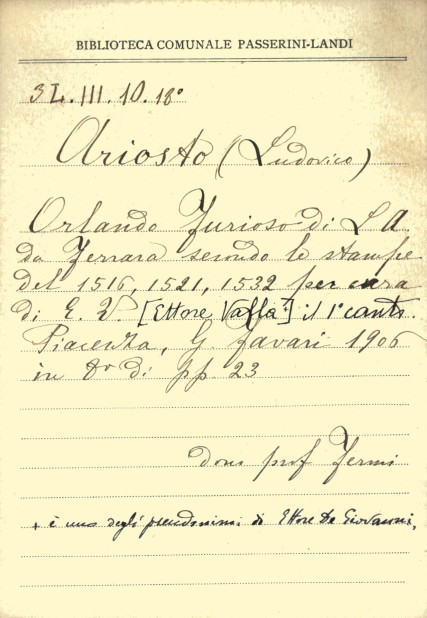 BIBLIOTECA COMUNALE PASSERINI-LANDI
3L.III.10.18°
Ariosto (Ludovico)
Orlando Furioso di L A
da Ferrara secondo le stampe
del 1516, 1521, 1532 per cura
di E. V. [Ettore Valla+] il 1° canto.
Piacenza, G. Favari 1906
in 8° di pp 23
dono prof Fermi
+ è uno degli pseudonimi di Ettore De Giovanni,